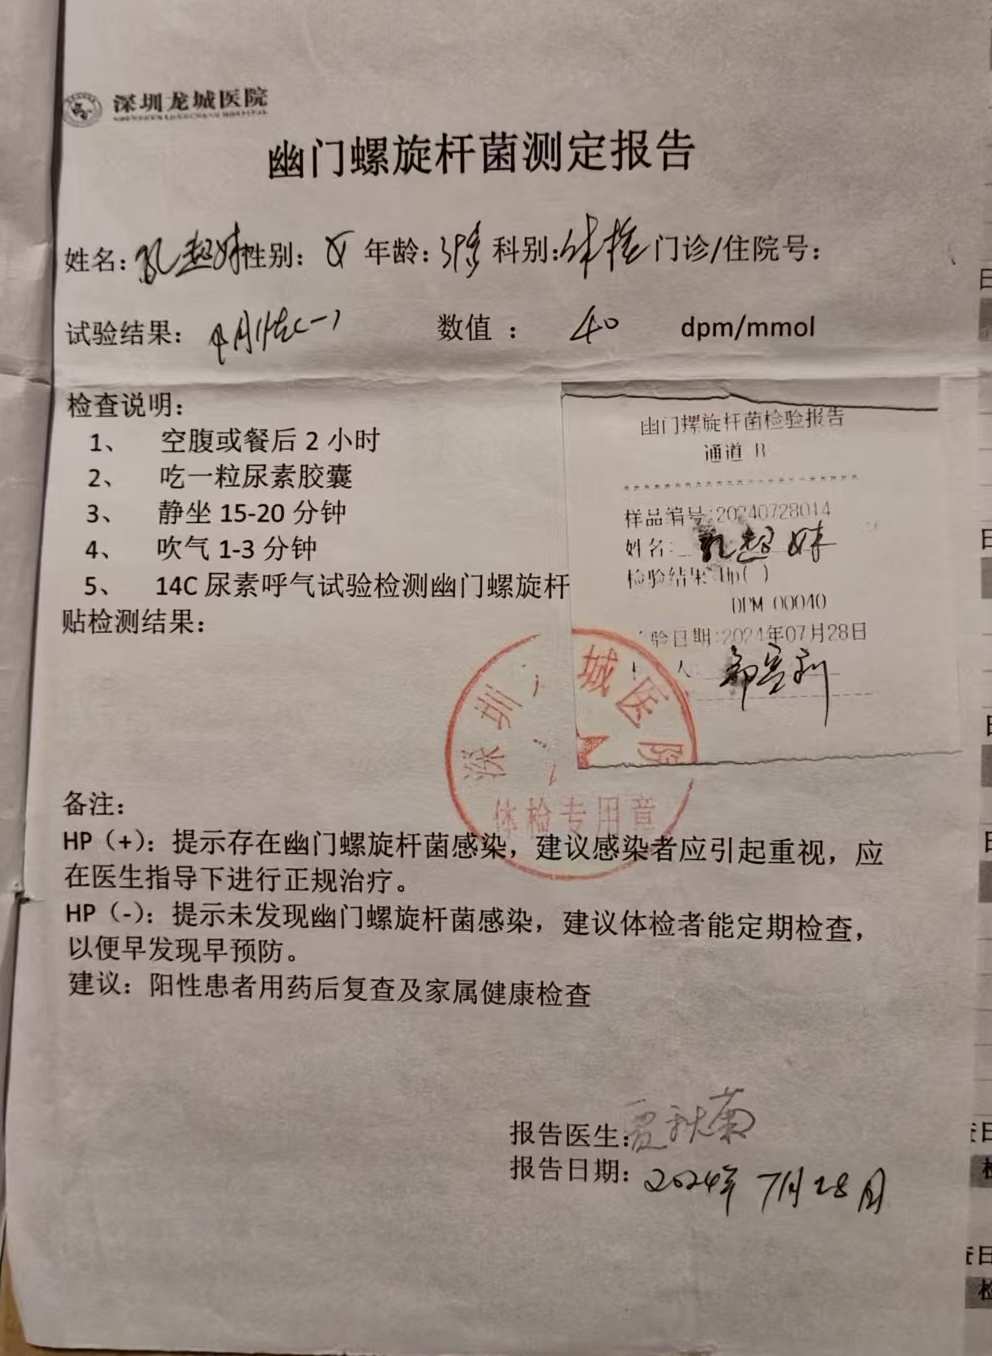 深圳龙城医院
SHENZHEN LONGCHENG HOSPITAL
幽门螺旋杆菌测定报告
姓名：孔超妹 性别：女 年龄：39岁 科别：体检 门诊/住院号：
试验结果：阴性(-) 数值 ： 40 dpm/mmol
检查说明：
1、 空腹或餐后 2 小时
2、 吃一粒尿素胶囊
3、 静坐 15-20 分钟
4、 吹气 1-3 分钟
5、 14C 尿素呼气试验检测幽门螺旋杆
贴检测结果：
幽门螺旋杆菌检验报告
通道 B
样品编号:20240728014
姓名: 孔超妹
检验结果:Hp( )
DPM 00040
验日期:2024年07月28日
人
深圳 城医院
体检专用章
备注：
HP（+）：提示存在幽门螺旋杆菌感染，建议感染者应引起重视，应
在医生指导下进行正规治疗。
HP（-）：提示未发现幽门螺旋杆菌感染，建议体检者能定期检查，
以便早发现早预防。
建议：阳性患者用药后复查及家属健康检查
报告医生：夏秋菊
报告日期：2024年7月28日